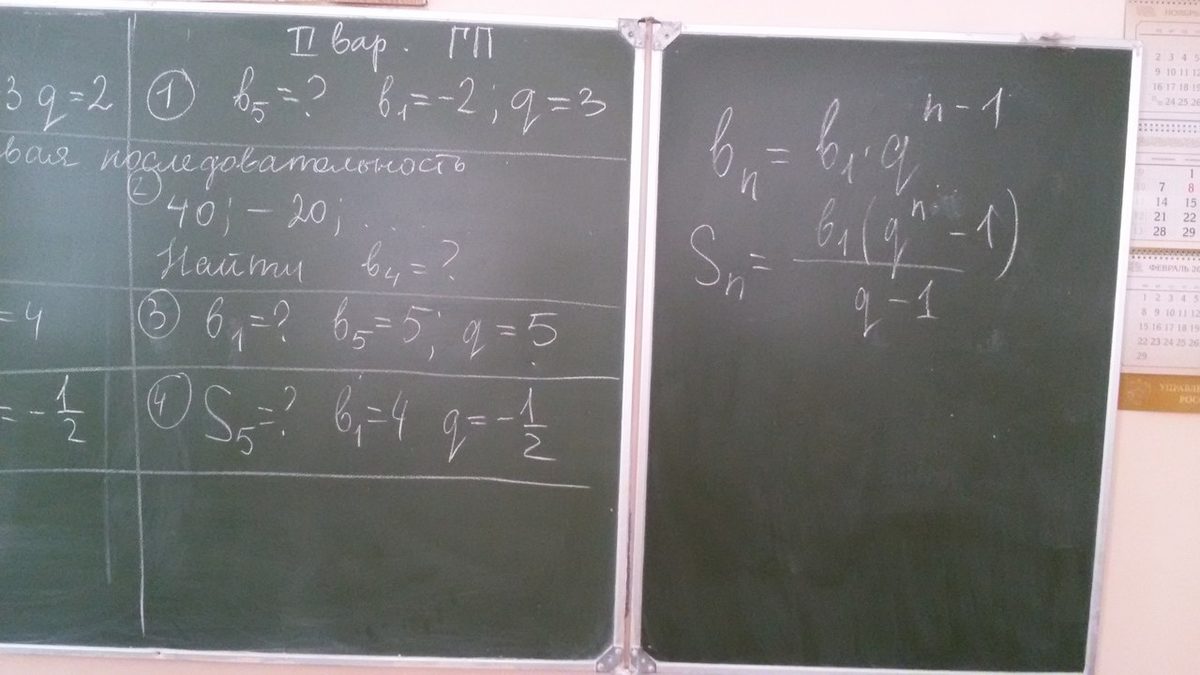 II вар. ГП
3 q=2
① b₅=? b₁=-2; q=3
вая последовательность
② 40; -20; ...
Найти b₄=?
=4
③ b₁=? b₅=5; q=5
=-1/2
④ S₅=? b₁=4 q=-1/2
bₙ=b₁·qⁿ⁻¹
Sₙ=b₁(qⁿ-1)/q-1
НОЯБРЬ
2 3 4 5
9 10 11 12
16 17 18 19
24 25 26
1
7 8
14 15
21 22
28 29
ФЕВРАЛЬ 20
1 2 3 4 5
8 9 10 11 12
15 16 17 18 19
22 23 24 25 26
29
УПРАВЛЕ
РОС